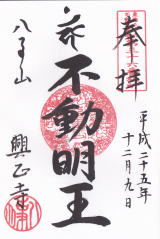 奉拝
平成二十五年
十二月九日
不動明王
八事山
興正寺